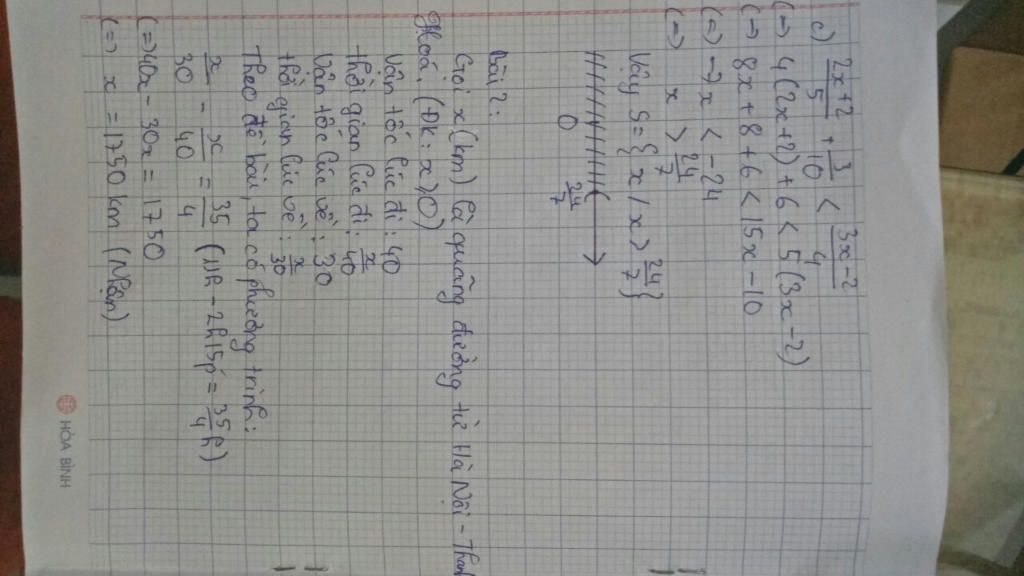 c) (2x+2)/5 + 3/10 < (3x-2)/4
(=) 4(2x+2)+6 < 5(3x-2)
(=) 8x+8+6 < 15x-10
(=) -7x < -24
(=) x > 24/7
Vậy S={x/x>24/7}
0 24/7
Bài 2:
Gọi x(km) là quãng đường từ Hà Nội - Thanh
Hoá. (ĐK: x>0)
Vận tốc lúc đi: 40
thời gian lúc đi: x/40
Vận tốc lúc về: 30
thời gian lúc về: x/30
Theo đề bài, ta có phương trình:
x/30 - x/40 = 35/4 (11h - 2h15p' = 35/4h)
(=) 40x - 30x = 1750
(=) x = 1750km (Nhận)
HÒA BÌNH